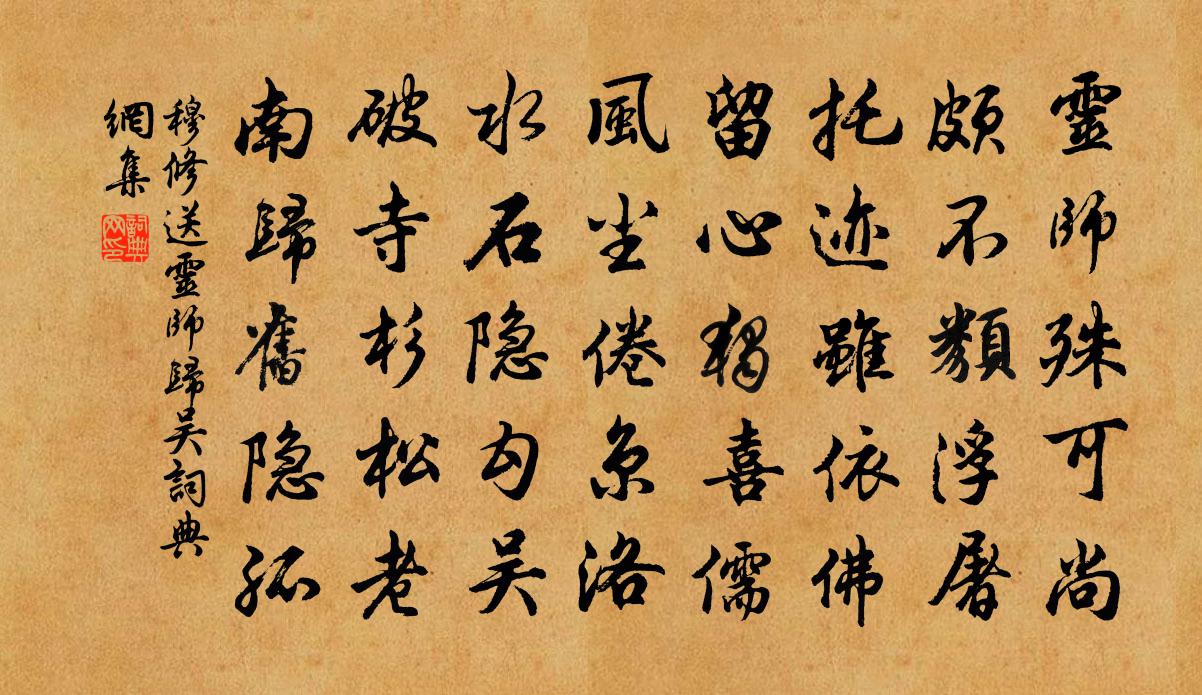 靈師殊可尚
頗不類浮屠
托迹雖依佛
留心獨喜儒
風尘倦京洛
水石隐勾吴
破寺杉松老
南歸舊隐孤
穆修送靈師歸吴詞典
網集
詞典网印